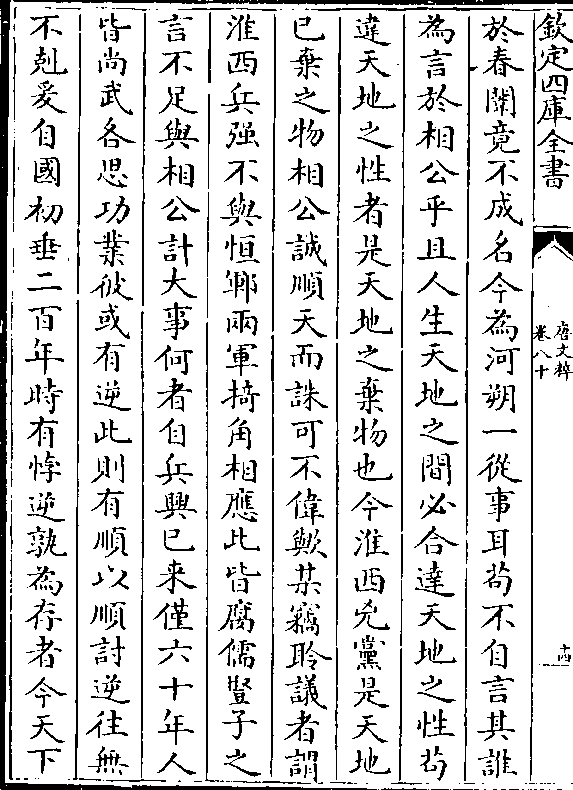 欽定四庫全書
唐文粹
卷八十
十四
於春闈竟不成名今為河朔一從事耳茍不自言其誰
為言於相公乎且人生天地之間必合達天地之性茍
違天地之性者是天地之棄物也今淮西兇黨是天地
已棄之物相公誠順天而誅可不偉歟某竊聆議者謂
淮西兵强不與恒鄆兩軍掎角相應此皆腐儒豎子之
言不足與相公計大事何者自兵興已来僅六十年人
皆尚武各思功業彼或有逆此則有順以順討逆往無
不剋爰自國初垂二百年時有悖逆孰為存者今天下